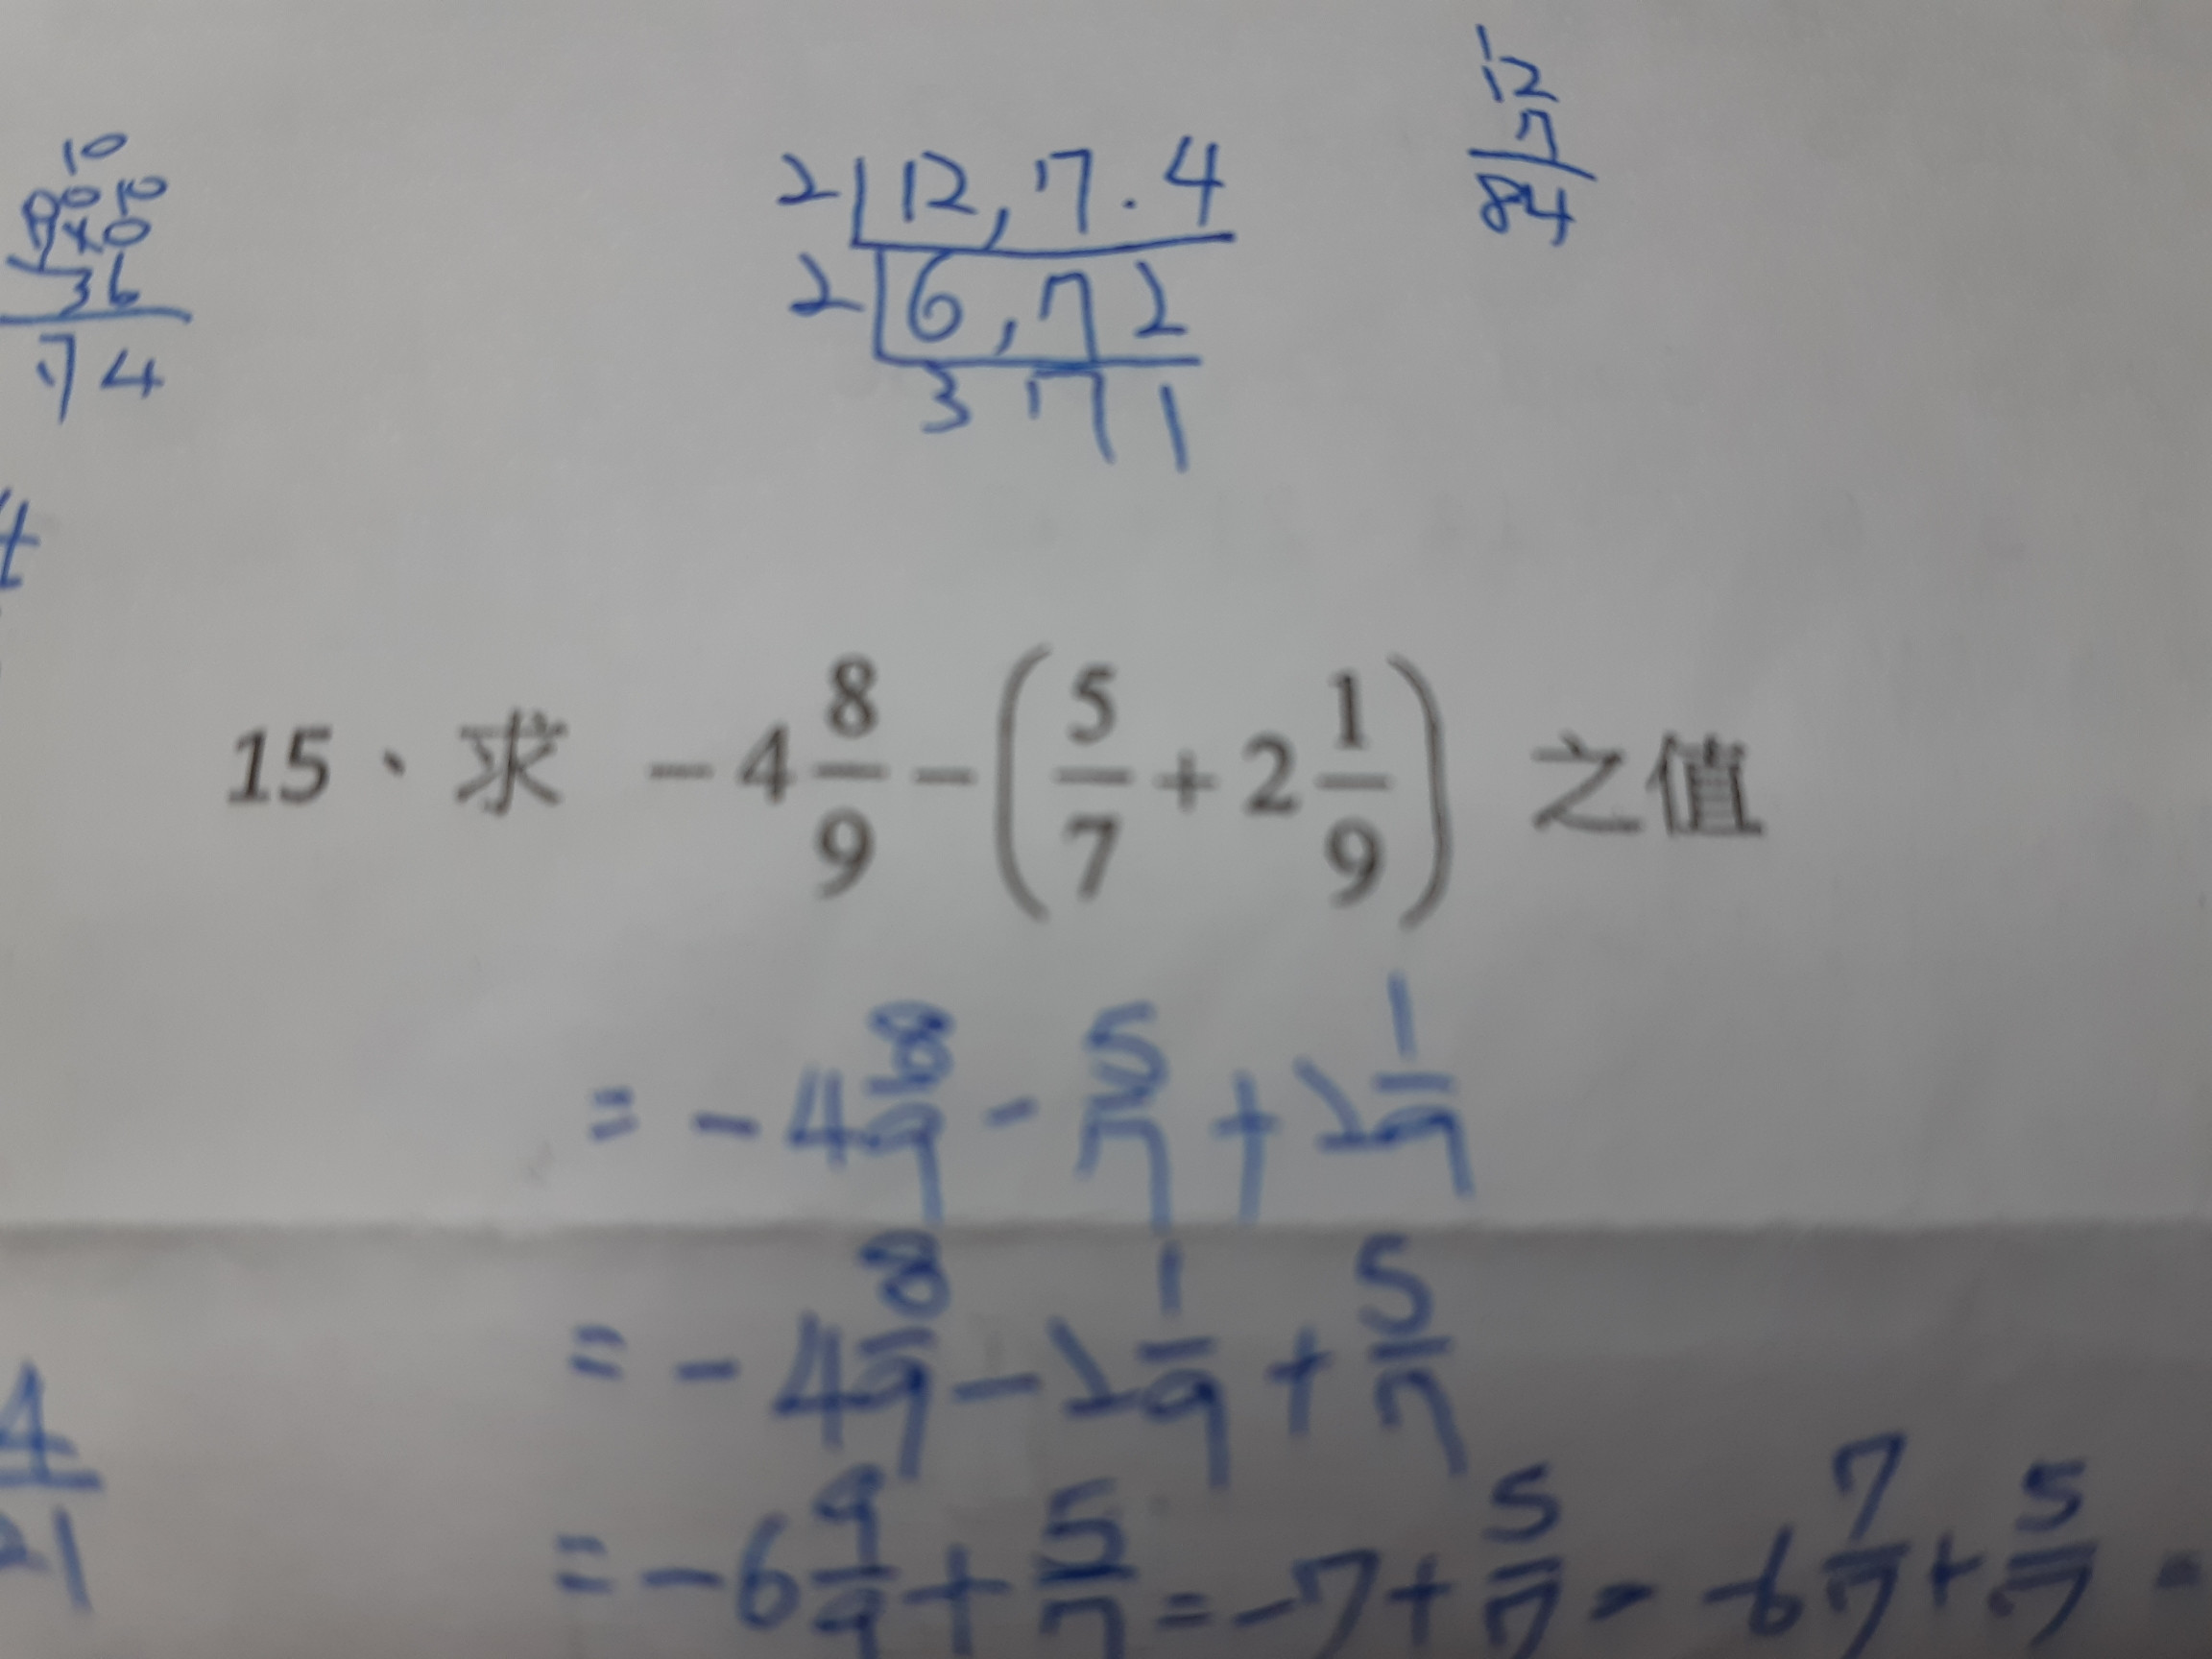 10
9 0 10
1 4 0
36
74
2 12, 7. 4
2 6, 7 2
3 7 1
12
7
84
15、求 -4 8/9 - ( 5/7 + 2 1/9 ) 之值
= - 4 8/9 - 5/7 + 2 1/9
= - 4 8/9 - 2 1/9 + 5/7
4/21
= - 6 9/9 + 5/7 = -7 + 5/7 = -6 7/7 + 5/7 =